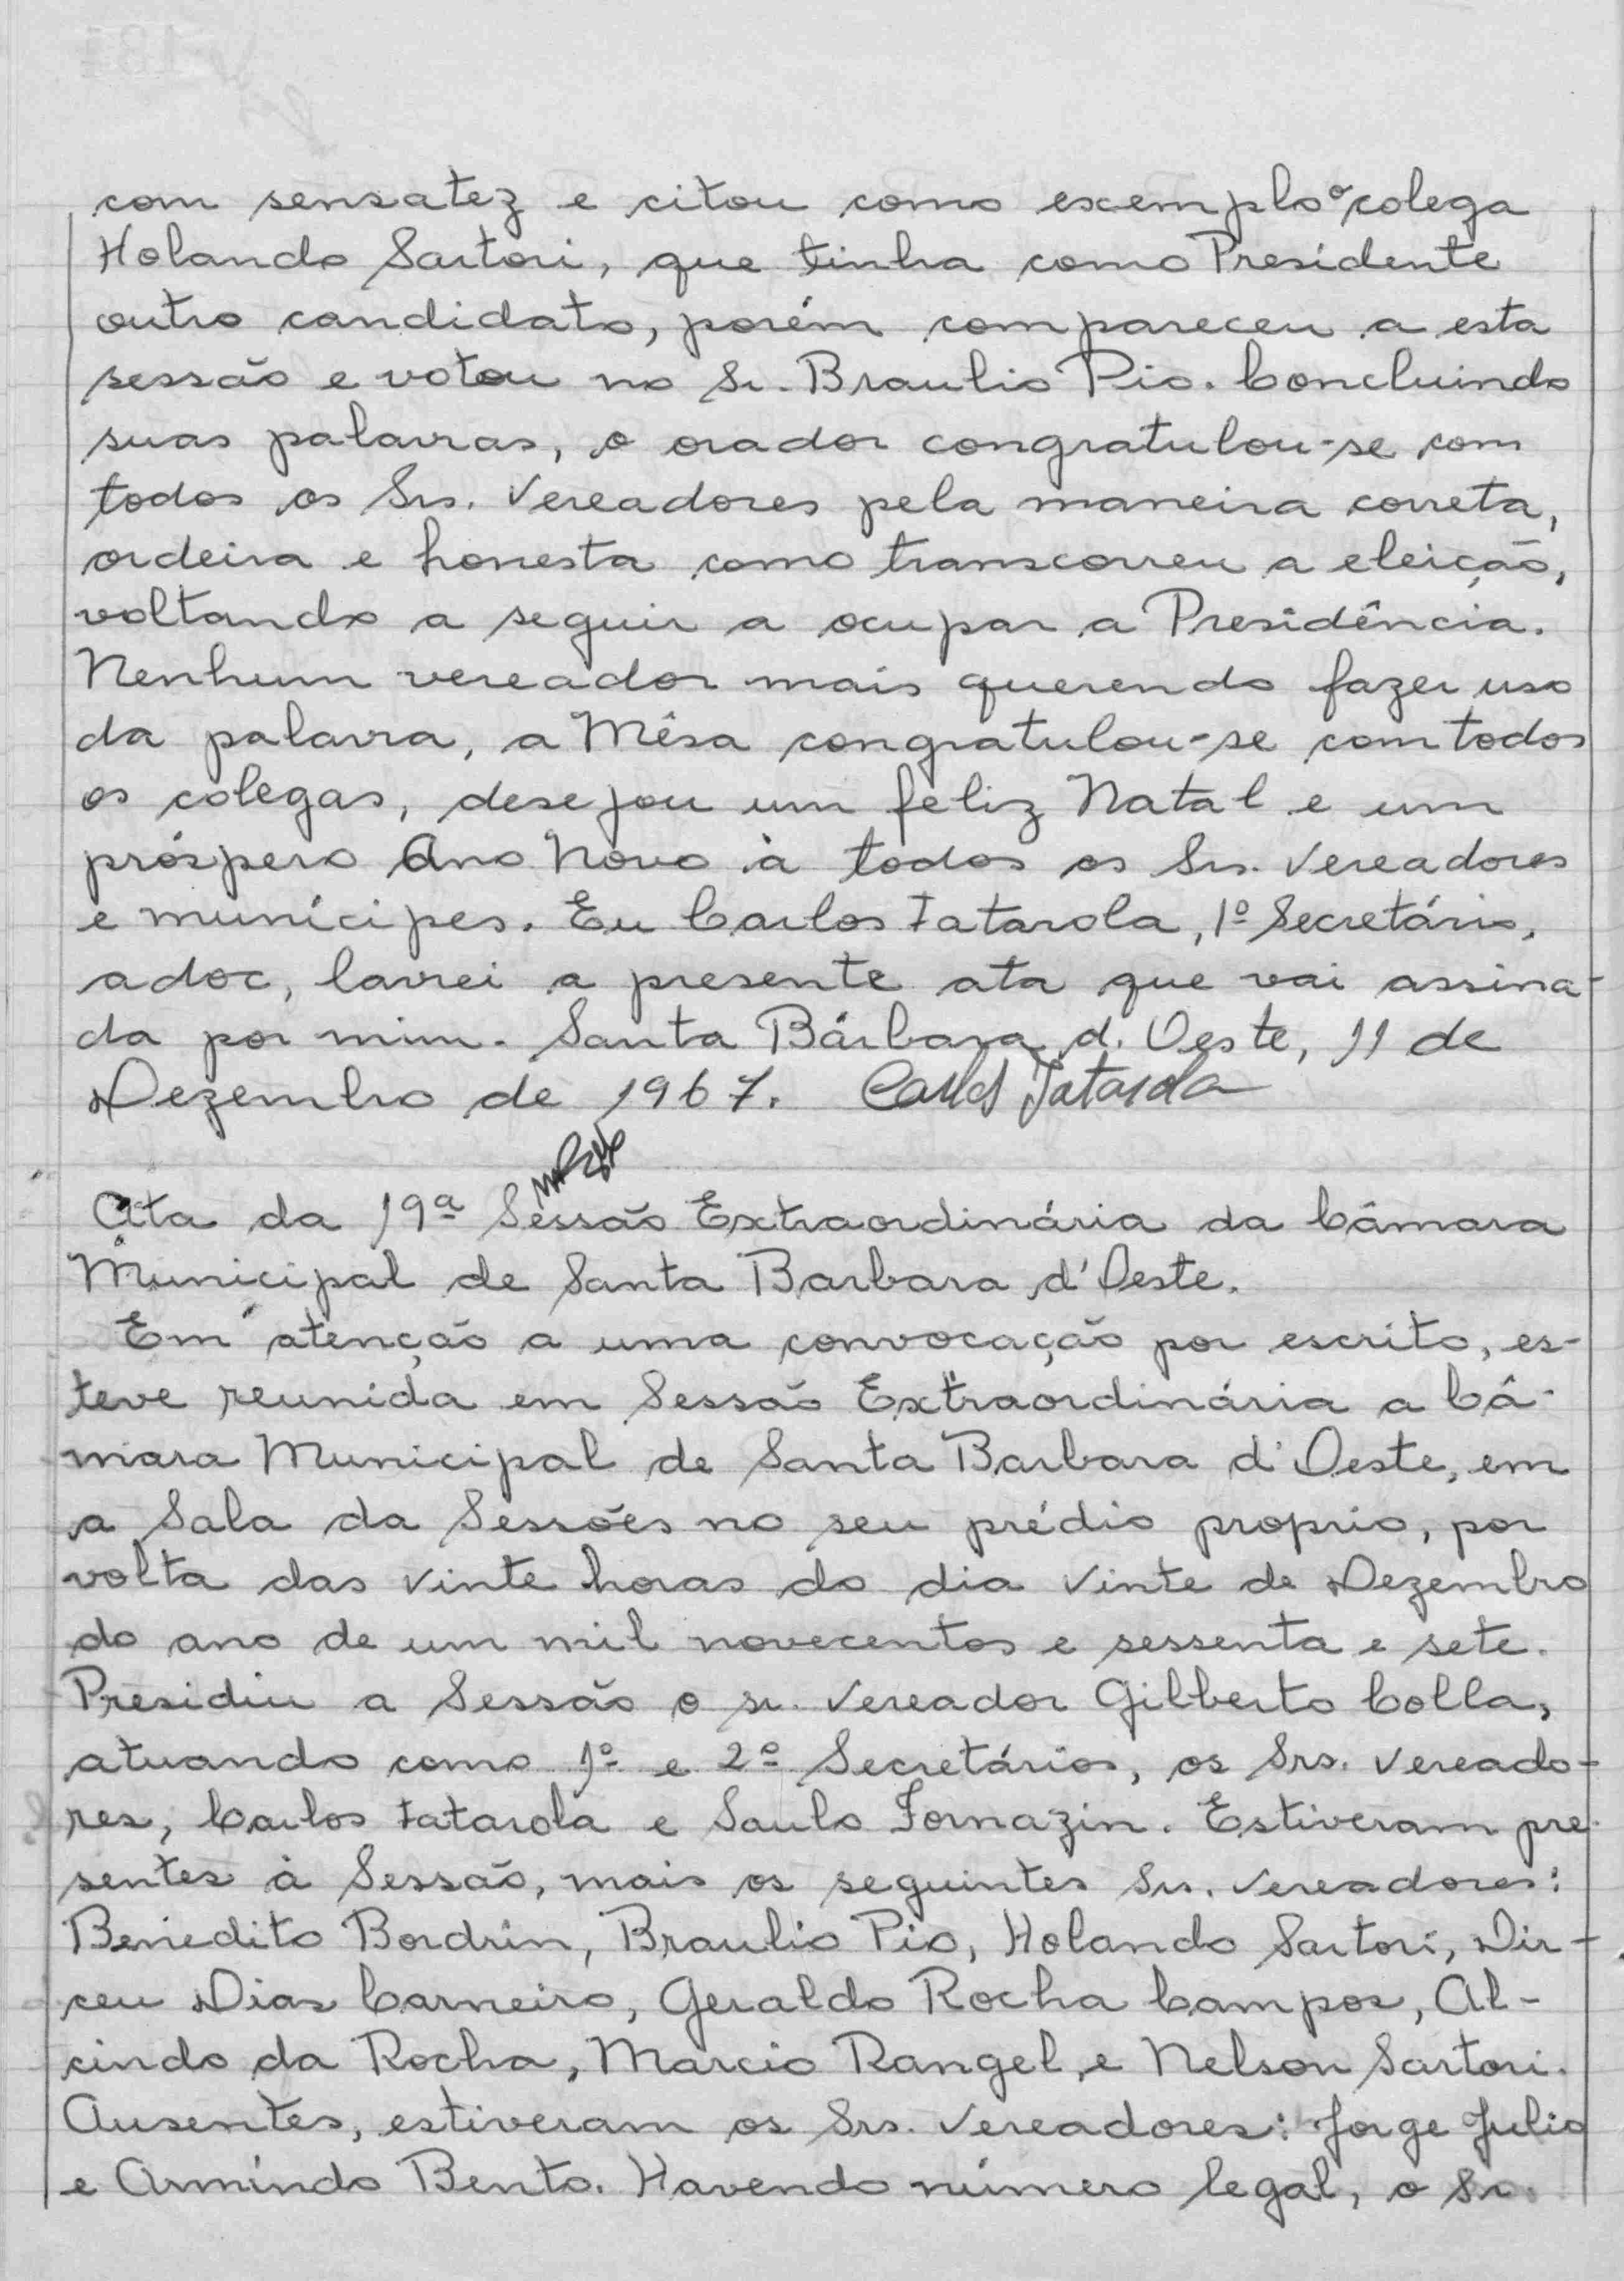 com sensatez e citou como exemplo o colega
Holando Sartori, que tinha como Presidente
outro candidato, porém compareceu a esta
sessão e votou no Sr. Braulio Pio. Concluindo
suas palavras, o orador congratulou-se com
todos os Srs. Vereadores pela maneira correta,
ordeira e honesta como transcorreu a eleição,
voltando a seguir a ocupar a Presidência.
Nenhum vereador mais querendo fazer uso
da palavra, a Mêsa congratulou-se com todos
os colegas, desejou um feliz Natal e um
próspero Ano Novo à todos os Srs. Vereadores
e munícipes. Eu Carlos Fatarola, 1º Secretário,
adoc, lavrei a presente ata que vai assina-
da por mim. Santa Bárbara d. Oeste, 11 de
Dezembro de 1967. Carlos Fatarola
Ata da 19ª Sessão Extraordinária da Câmara
Municipal de Santa Barbara d'Oeste.
Em atenção a uma convocação por escrito, es-
teve reunida em Sessão Extraordinária a Câ-
mara Municipal de Santa Barbara d'Oeste, em
a Sala da Sessões no seu prédio proprio, por
volta das vinte horas do dia vinte de Dezembro
do ano de um mil novecentos e sessenta e sete.
Presidiu a Sessão o sr. Vereador Gilberto Colla,
atuando como 1º e 2º Secretários, os Srs. Vereado-
res, Carlos Fatarola e Saulo Fornazin. Estiveram pre-
sentes à Sessão, mais os seguintes Srs. Vereadores:
Benedito Bordrin, Braulio Pio, Holando Sartori, Dir-
ceu Dias Carneiro, Geraldo Rocha Campos, Al-
cindo da Rocha, Marcio Rangel, e Nelson Sartori.
Ausentes, estiveram os Srs. Vereadores: Jorge Julio
e Armindo Bento. Havendo número legal, o Sr.